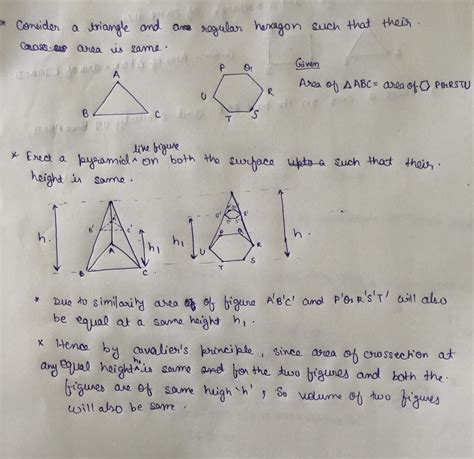 * Consider a triangle and a regular hexagon such that their
area is same.
A
B
C
P
Q
R
S
T
U
Given
Area of △ABC = area of ⬡ PQRSTU
like figure
* Erect a pyramid on both the surface upto a such that their
height is same.
h
A
B'
C'
A
B
C
h1
h1
P
Q
R
S
T
U
h.
* Due to similarity area of figure A'B'C' and P'Q'R'S'T' will also
be equal at a same height h1.
* Hence by cavalier's principle, since area of crossection at
any equal height h1 is same and for the two figures and both the
figures are of same heigh 'h', so volume of two figures
will also be same.